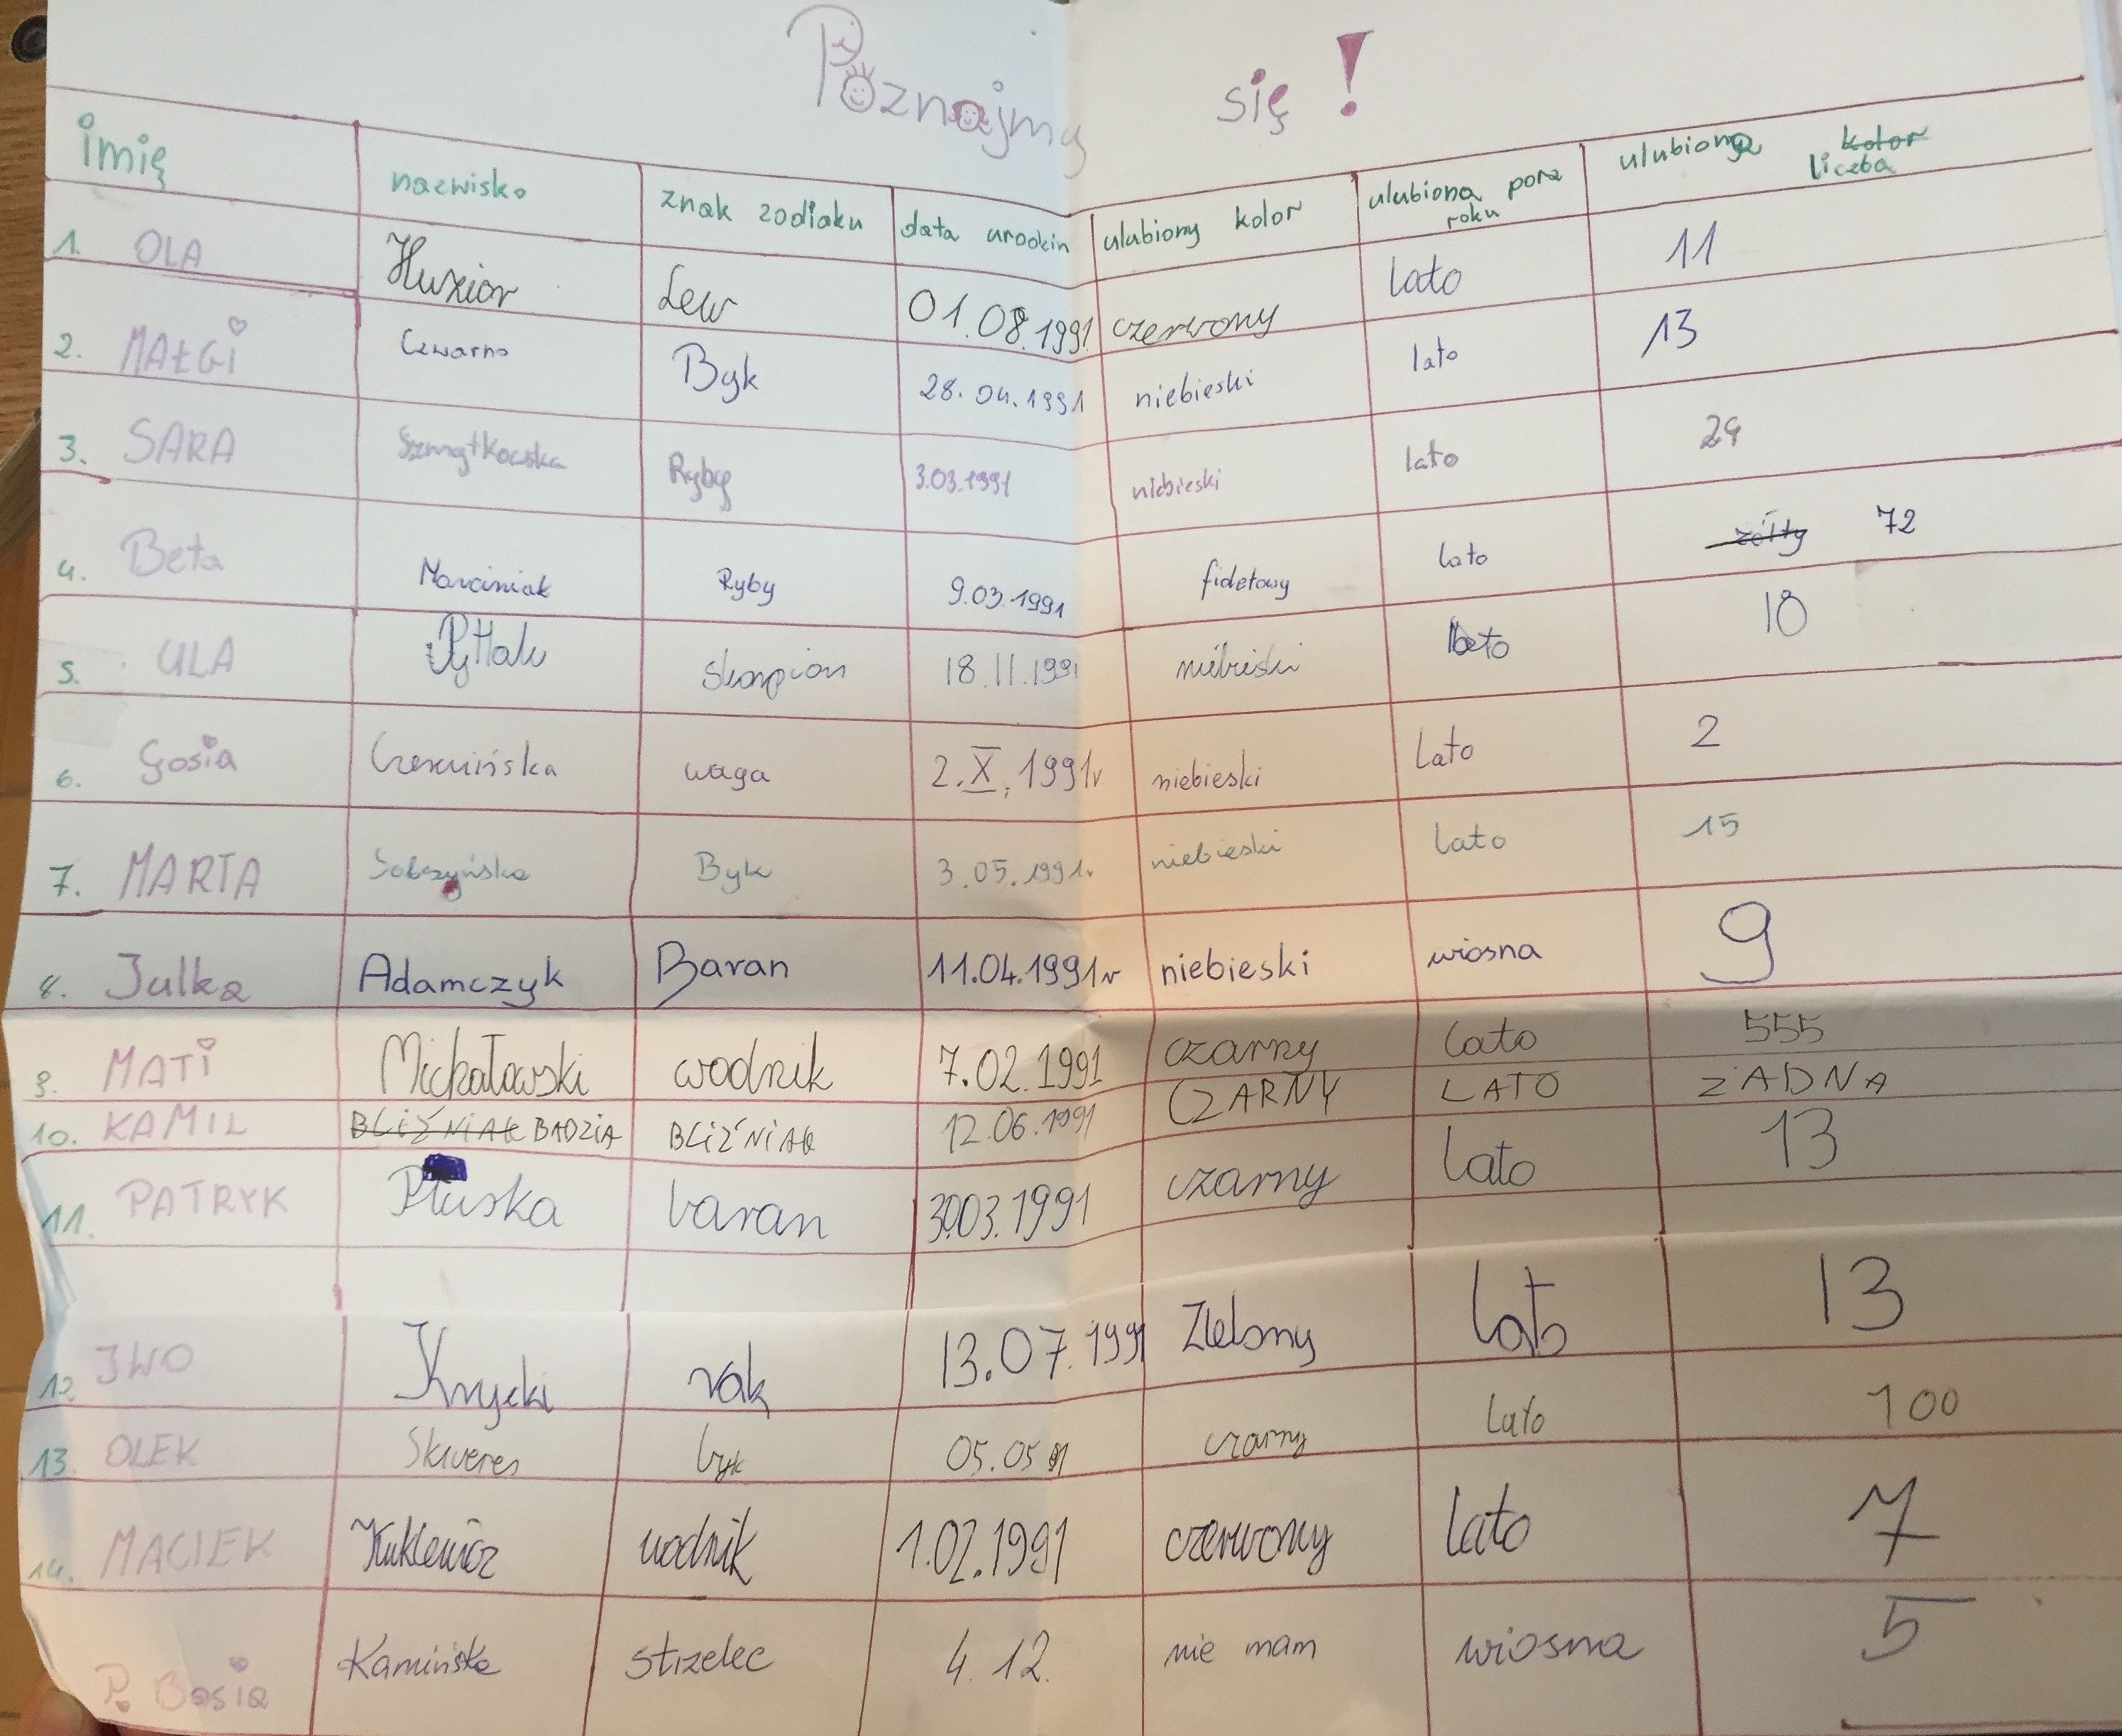 Poznajmy się!
imię nazwisko znak zodiaku data urodzin ulubiony kolor ulubiona pora roku ulubiona kolor liczba
1. OLA Huzior Lew 01.08.1991 czerwony lato 11
2. MAŁGI Czwarno Byk 28.04.1991 niebieski lato 13
3. SARA Szmytkowska Ryby 3.03.1991 niebieski lato 29
4. Beta Marciniak Ryby 9.03.1991 fioletowy lato żółty 72
5. ULA Pyttak skorpion 18.11.1991 niebieski lato 10
6. Gosia waga 2.X.1991r niebieski lato 2
7. MARTA Sobczyńska Byk 3.05.1991r. niebieski lato 15
8. Julka Adamczyk Baran 11.04.1991r niebieski wiosna 9
9. MATI Michałowski wodnik 7.02.1991 czarny lato 555
10. KAMIL BLIŹNIAK BADZIA BLIŹNIAK 12.06.1991 CZARNY LATO ŻADNA
11. PATRYK Pluska baran 30.03.1991 czarny lato 13
12 IWO Knycki rak 13.07.1991 Zielony lato 13
13. OLEK Skweres byk 05.05.91 czarny lato 100
14. MACIEK Kuklewicz wodnik 1.02.1991 czerwony lato 7
P. Basia Kamińska strzelec 4.12. nie mam wiosna 5